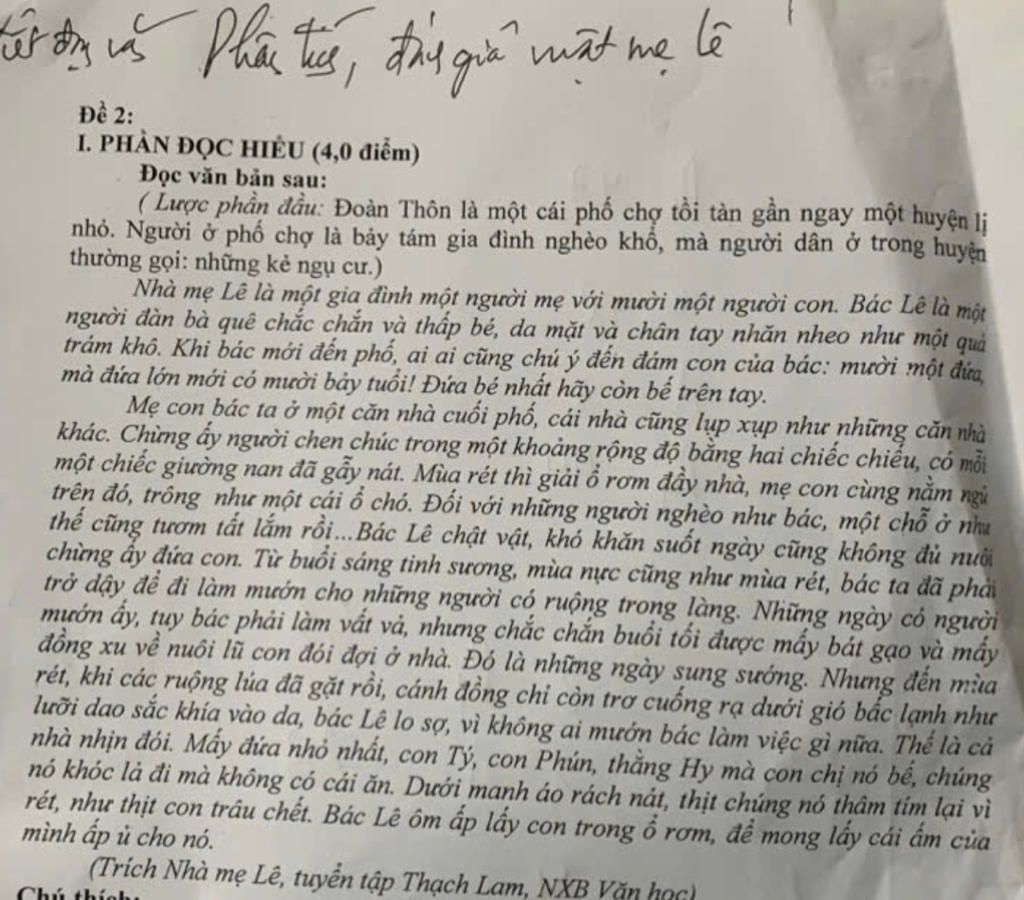 viết đoạn văn Phân tích, đánh giá nhân vật mẹ Lê
Đề 2:
I. PHẦN ĐỌC HIỂU (4,0 điểm)
Đọc văn bản sau:
( Lược phần đầu: Đoàn Thôn là một cái phố chợ tồi tàn gần ngay một huyện lị
nhỏ. Người ở phố chợ là bảy tám gia đình nghèo khổ, mà người dân ở trong huyện
thường gọi: những kẻ ngụ cư.)
Nhà mẹ Lê là một gia đình một người mẹ với mười một người con. Bác Lê là một
người đàn bà quê chắc chắn và thấp bé, da mặt và chân tay nhăn nheo như một quả
trám khô. Khi bác mới đến phố, ai ai cũng chú ý đến đám con của bác: mười một đứa,
mà đứa lớn mới có mười bảy tuổi! Đứa bé nhất hãy còn bế trên tay.
Mẹ con bác ta ở một căn nhà cuối phố, cái nhà cũng lụp xụp như những căn nhà
khác. Chừng ấy người chen chúc trong một khoảng rộng độ bằng hai chiếc chiếu, có mỗi
một chiếc giường nan đã gẫy nát. Mùa rét thì giải ổ rơm đầy nhà, mẹ con cùng nằm ngủ
trên đó, trông như một cái ổ chó. Đối với những người nghèo như bác, một chỗ ở như
thế cũng tươm tất lắm rồi...Bác Lê chật vật, khó khăn suốt ngày cũng không đủ nuôi
chừng ấy đứa con. Từ buổi sáng tinh sương, mùa nực cũng như mùa rét, bác ta đã phải
trở dậy để đi làm mướn cho những người có ruộng trong làng. Những ngày có người
mướn ấy, tuy bác phải làm vất vả, nhưng chắc chắn buổi tối được mấy bát gạo và mấy
đồng xu về nuôi lũ con đói đợi ở nhà. Đó là những ngày sung sướng. Nhưng đến mùa
rét, khi các ruộng lúa đã gặt rồi, cánh đồng chỉ còn trơ cuống rạ dưới gió bấc lạnh như
lưỡi dao sắc khía vào da, bác Lê lo sợ, vì không ai mướn bác làm việc gì nữa. Thế là cả
nhà nhịn đói. Mấy đứa nhỏ nhất, con Tý, con Phún, thằng Hy mà con chị nó bế, chúng
nó khóc lả đi mà không có cái ăn. Dưới manh áo rách nát, thịt chúng nó thâm tím lại vì
rét, như thịt con trâu chết. Bác Lê ôm ấp lấy con trong ổ rơm, để mong lấy cái ấm của
mình ấp ủ cho nó.
(Trích Nhà mẹ Lê, tuyển tập Thạch Lam, NXB Văn học)
Chú thích: